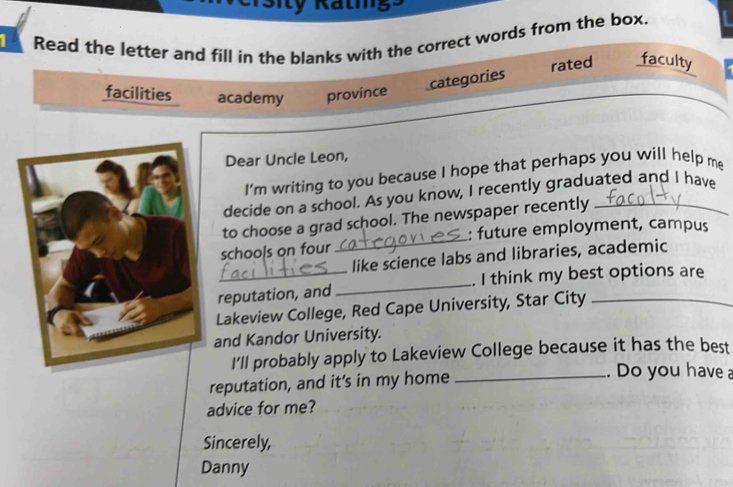 University Ratings
1 Read the letter and fill in the blanks with the correct words from the box.
facilities academy province categories rated faculty
Dear Uncle Leon,
I'm writing to you because I hope that perhaps you will help me
decide on a school. As you know, I recently graduated and I have
to choose a grad school. The newspaper recently faculty
schools on four categories : future employment, campus
facilities like science labs and libraries, academic
reputation, and ____________. I think my best options are
Lakeview College, Red Cape University, Star City ____________
and Kandor University.
I'll probably apply to Lakeview College because it has the best
reputation, and it's in my home ____________. Do you have a
advice for me?
Sincerely,
Danny